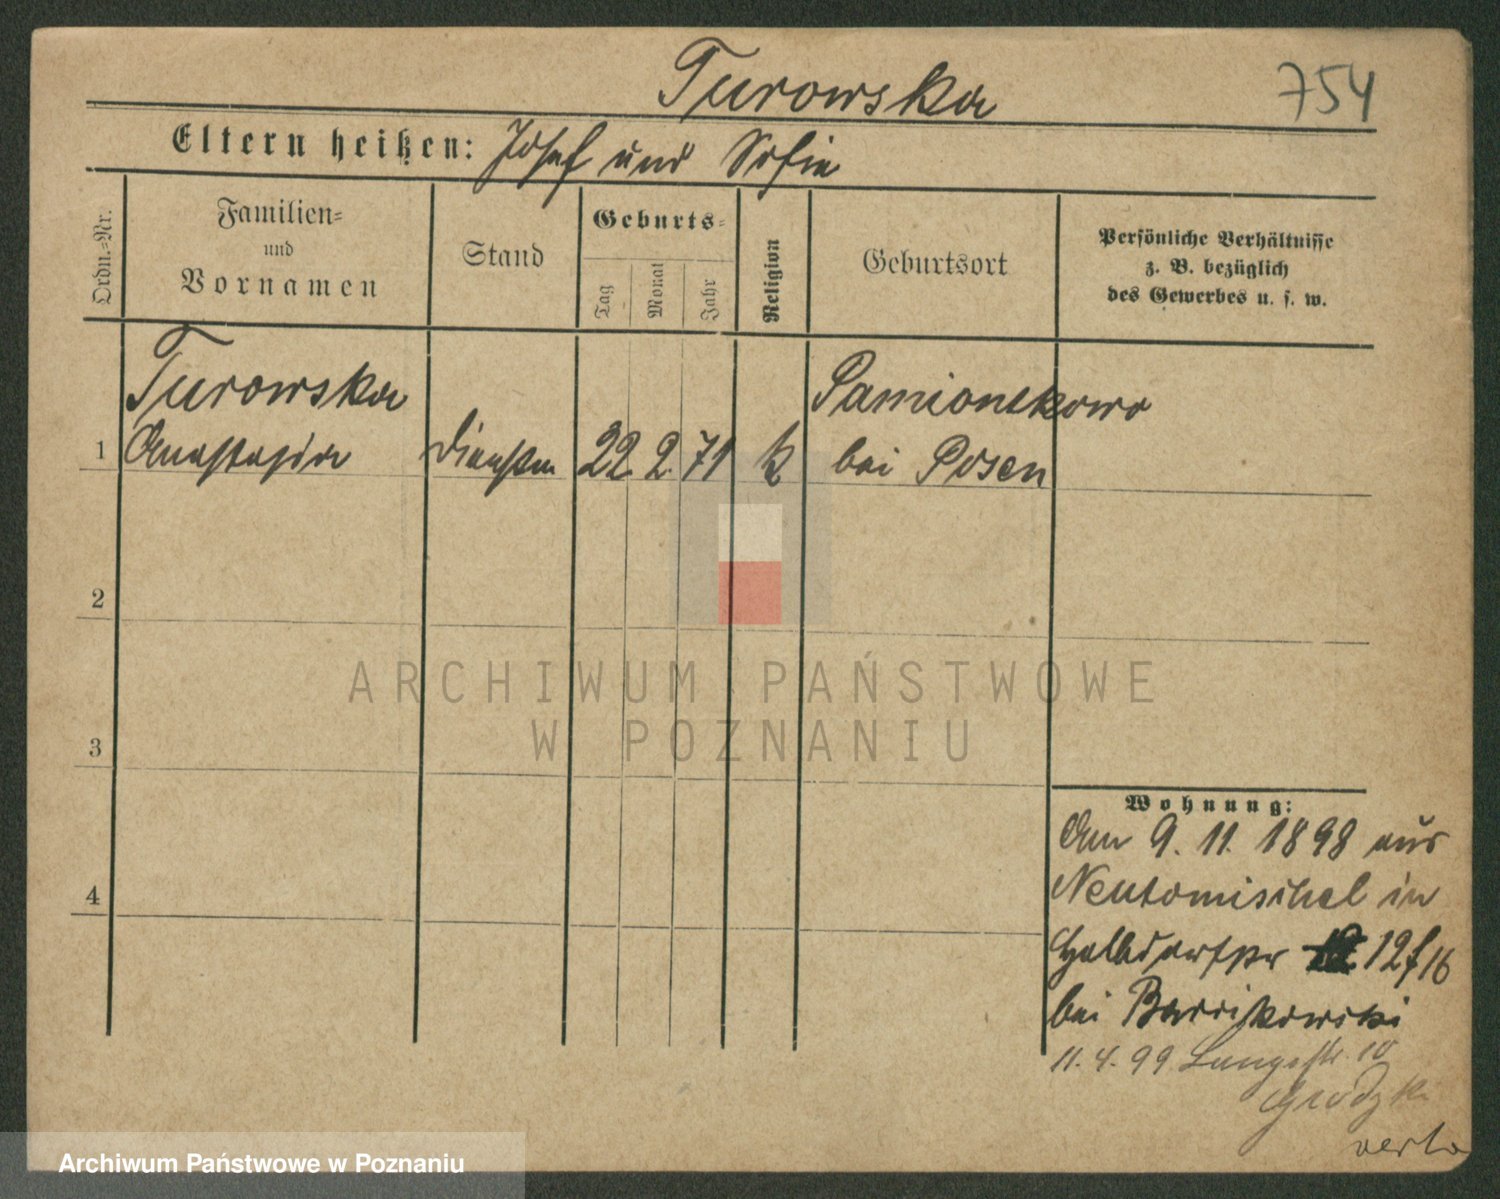 Turowska
754
Eltern heißen: Josef und Sofie
Ordn.-Nr.
Familien-
und
Vornamen
Stand
Geburts-
Tag
Monat
Jahr
Religion
Geburtsort
Persönliche Verhältnisse
z. B. bezüglich
des Gewerbes u. s. w.
Turowska
Pamiontkowo
1 Anastasia Dienstm 22 2. 71 k bei Posen
2
3
4
Wohnung:
Am 9. 11. 1898 aus
Neutomischel in
Halbdorfstr 12 f 16
bei
11. 4. 99 Langestr. 10
ARCHIWUM PAŃSTWOWE
W POZNANIU
Archiwum Państwowe w Poznaniu